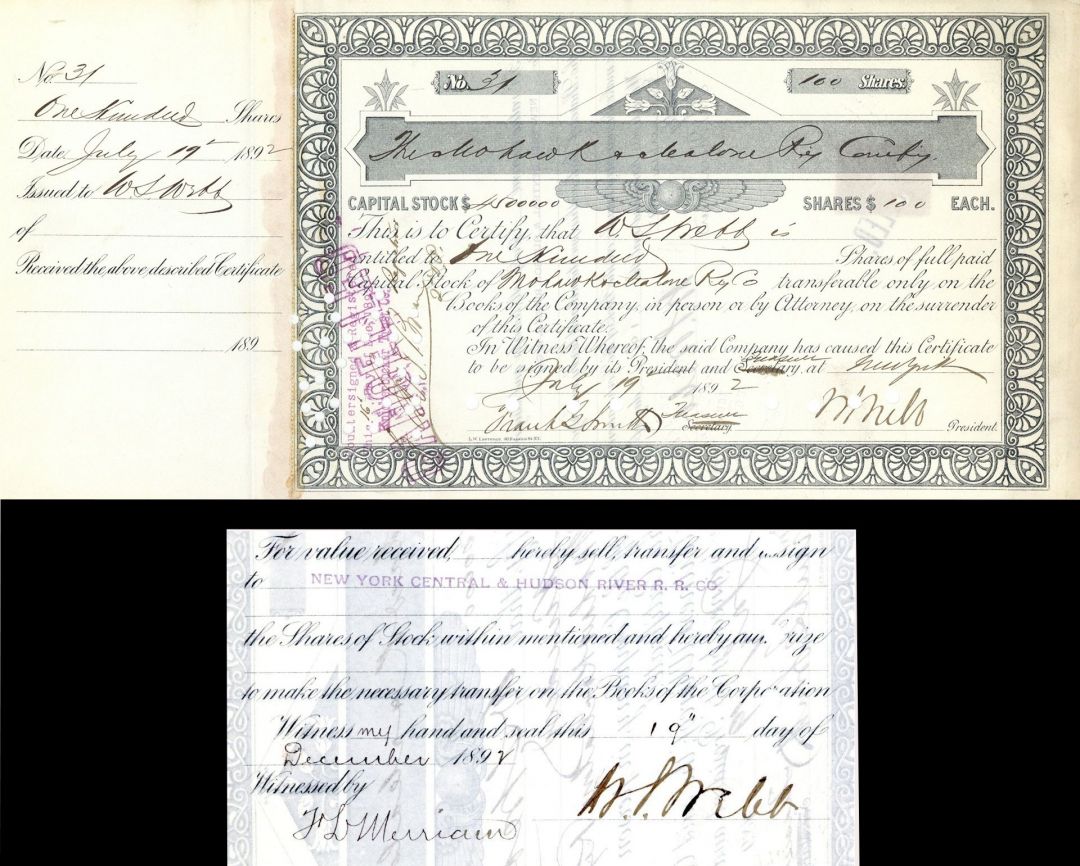 No. 31
One Hundred Shares
Date July 19" 1892
Issued to W S Webb
of
Received the above described Certificate
189
No. 31
100 Shares
The Mohawk & Malone Ry Comby.
CAPITAL STOCK $ 4500000 SHARES $ 100 EACH.
This is to Certify, that W S Webb is
entitled to One Hundred Shares of full paid
Capital Stock of Mohawk & Malone Ry Co transferable only on the
Books of the Company, in person or by Attorney, on the surrender
of this Certificate.
In Witness Whereof, the said Company has caused this Certificate
Treasurer
to be signed by its President and Secretary, at New York
July 19" 1892
Frank G Smith Treasurer Secretary W S Webb President.
L.W. Lawrence
Countersigned & Registered
For value received, hereby sell, transfer and assign
to NEW YORK CENTRAL & HUDSON RIVER R. R. CO.
the Shares of Stock within mentioned and hereby au rize
to make the necessary transfer on the Books of the Corporation
Witness my hand and seal this 19" day of
December 1892
Witnessed by
W. S. Webb
F L Merriam